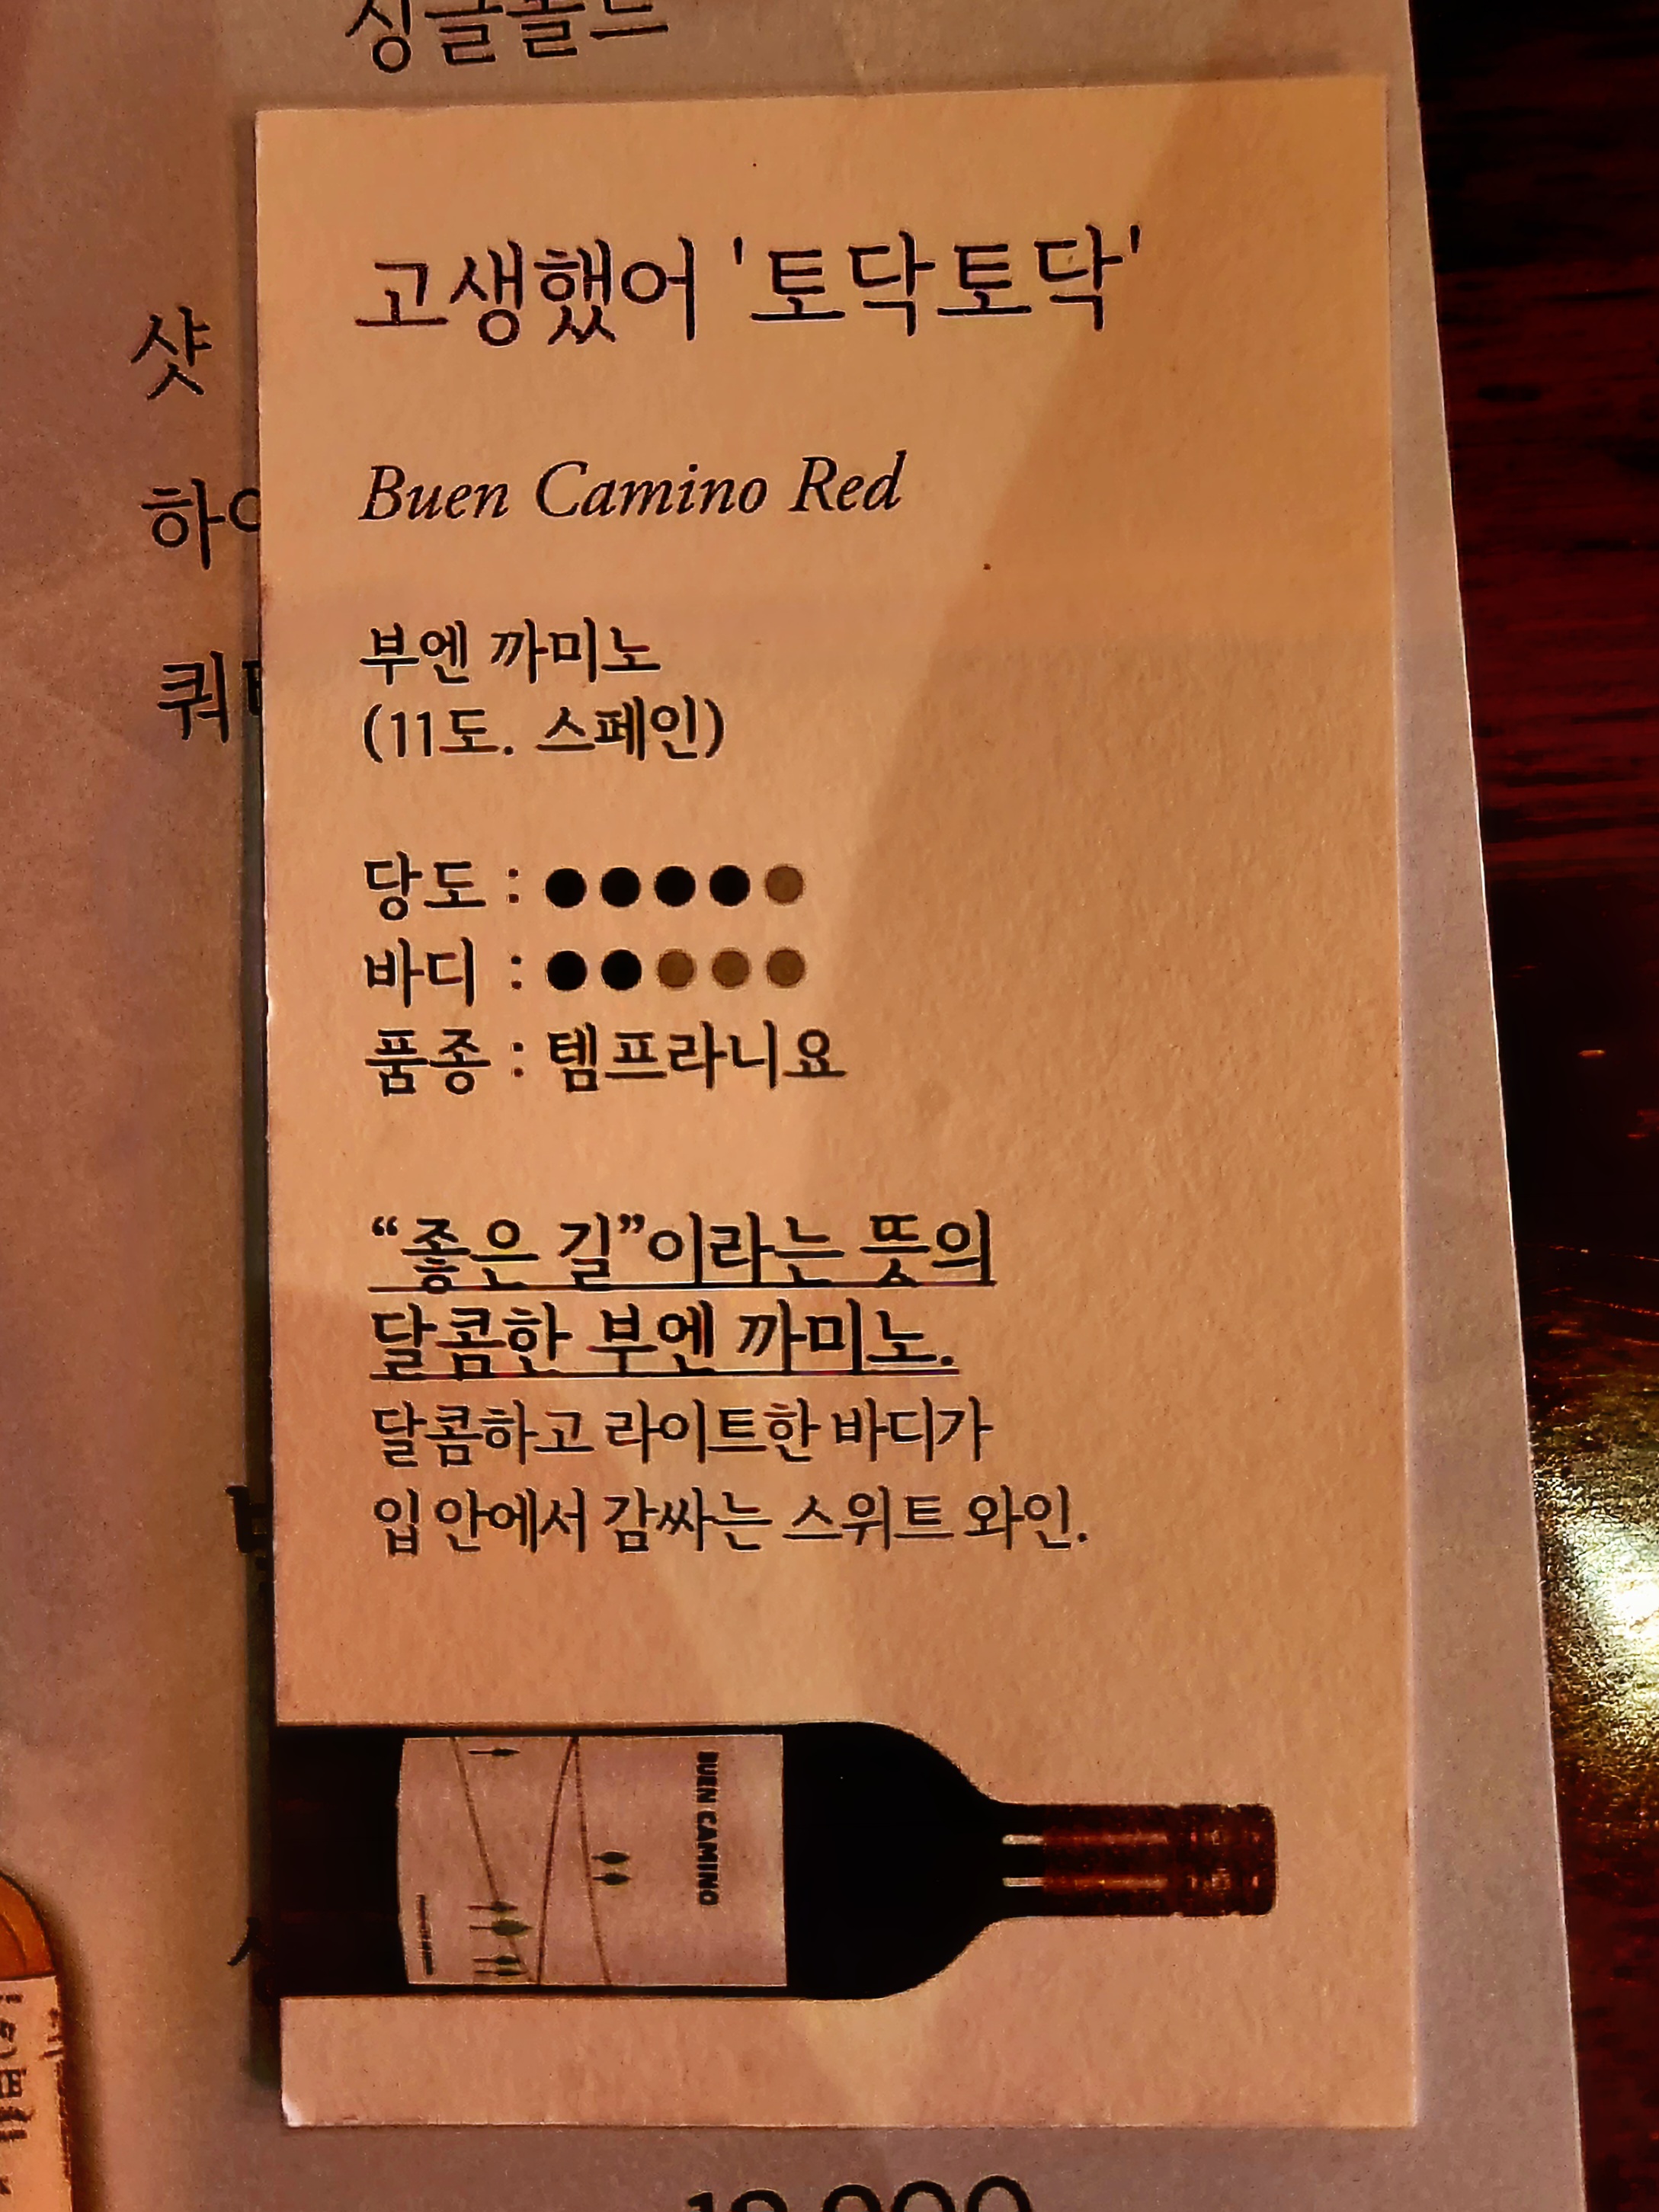 싱글몰트
샷
고생했어 '토닥토닥'
Buen Camino Red
부엔 까미노
(11도. 스페인)
당도 : ●●●●●
바디 : ●●●●●
품종 : 템프라니요
“좋은 길”이라는 뜻의
달콤한 부엔 까미노.
달콤하고 라이트한 바디가
입 안에서 감싸는 스위트 와인.
BUEN CAMINO